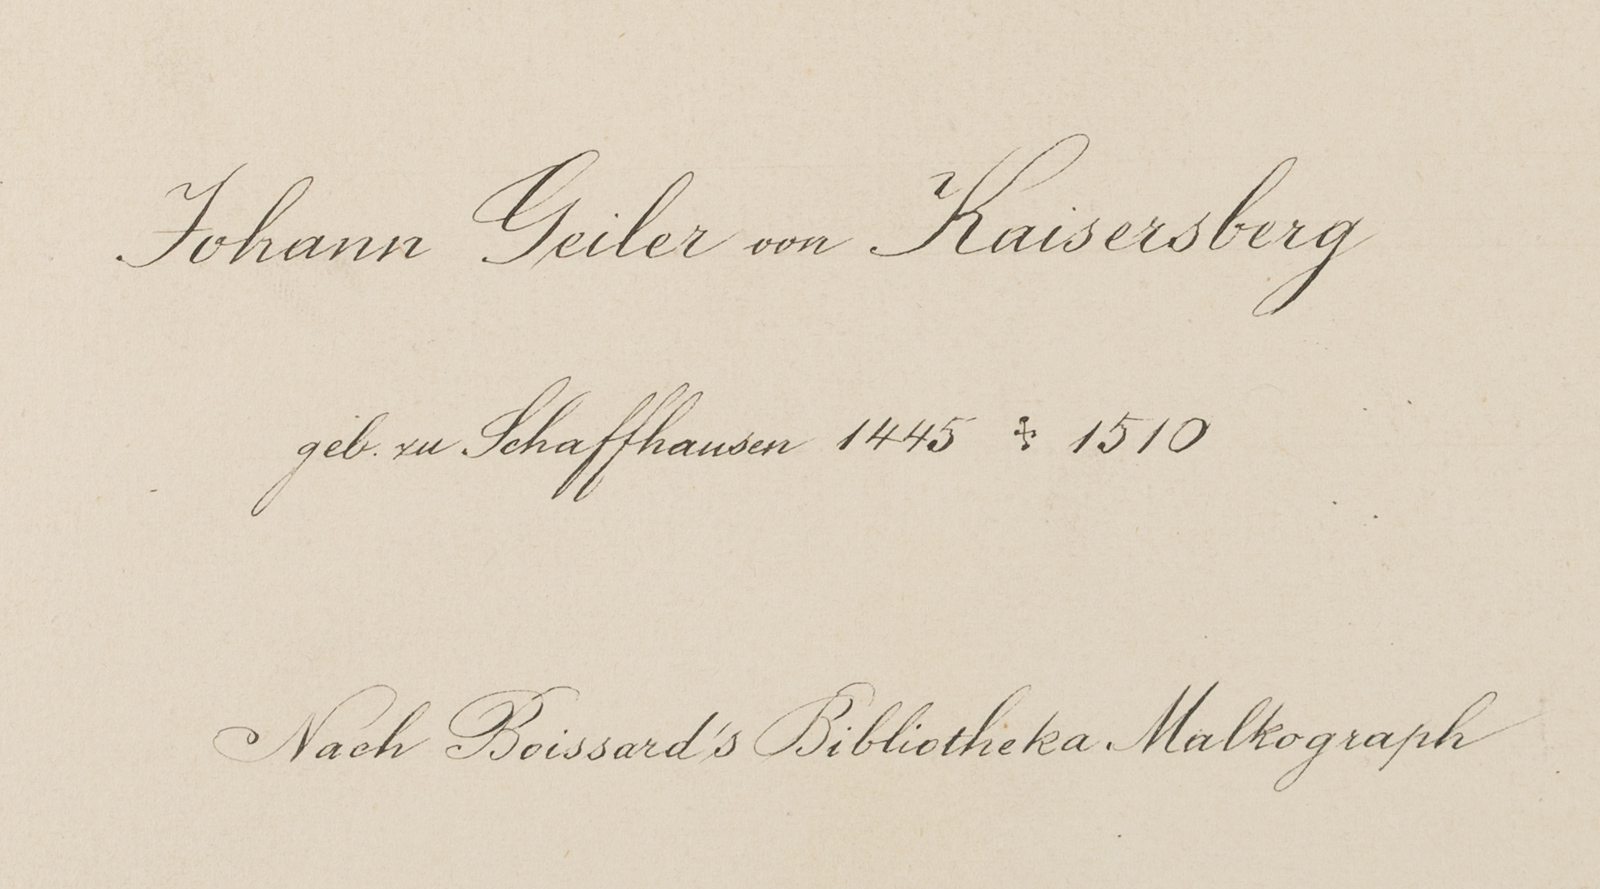 Johann Geiler von Kaisersberg
geb. zu Schaffhausen 1445 ✣ 1510
Nach Boissard's Bibliotheka Malkograph